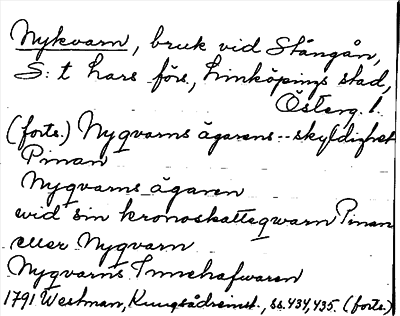 Nykvarn, bruk vid Stångån,
S:t Lars förs., Linköpings stad,
Österg. l.
(forts.) Nyqvarns ägarens -- skyldighet
Pinan
Nyqvarns ägaren
wid sin kronoskatteqwarn Pinan
eller Nyqvarn
Nyqvarns Innehafwaren
1791 Westman, Kungsådreinst., ss. 434, 435. (forts.)